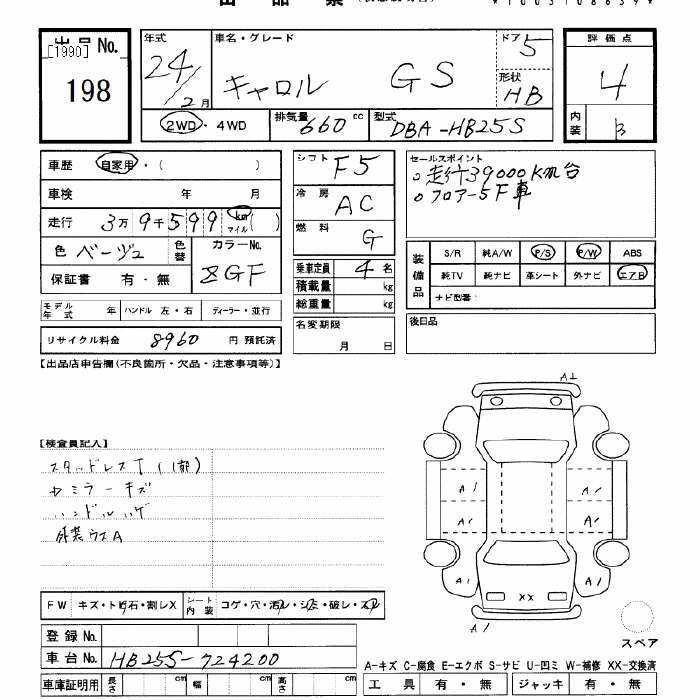 出 品 票
出 品 No.
[1990]
198
年式 24/2月
車名・グレード キャロル GS
ドア 5
形状 HB
2WD・4WD
排気量 660 cc
型式 DBA-HB25S
評 価 点
4
内装 B
車歴 自家用・( )
車検 年 月
走行 3万 9千 5 9 9 km マイル ( )
色 ベージュ 色替 カラーNo. ZGF
保証書 有・無
モデル年式 年 ハンドル 左・右 ディーラー・並行
リサイクル料金 8960 円 預託済
シフト F5
冷房 AC
燃料 G
乗車定員 4 名
積載量 kg
総重量 kg
名変期限
月 日
セールスポイント
○走行39000Km台
○フロアー5F車
装備品
S/R 純A/W P/S P/W ABS
純TV 純ナビ 革シート 外ナビ エアB
ナビ型番:
後日品
【出品店申告欄(不良箇所・欠品・注意事項等)】
【検査員記入】
スタッドレスT(1部)
ミラーキズ
ハンドルハゲ
外装ウスA
A1
A1 A1
A1 A1
A1 A1
XX
A1
スペア
FW キズ・トビ石・割レX シート内装 コゲ・穴・汚レ・シミ・破レ・スレ
登録 No.
車台 No. HB25S-724200
車庫証明用 長さ cm 幅 cm 高さ cm
A-キズ C-腐食 E-エクボ S-サビ U-凹ミ W-補修 XX-交換済
工 具 有・無 ジャッキ 有・無